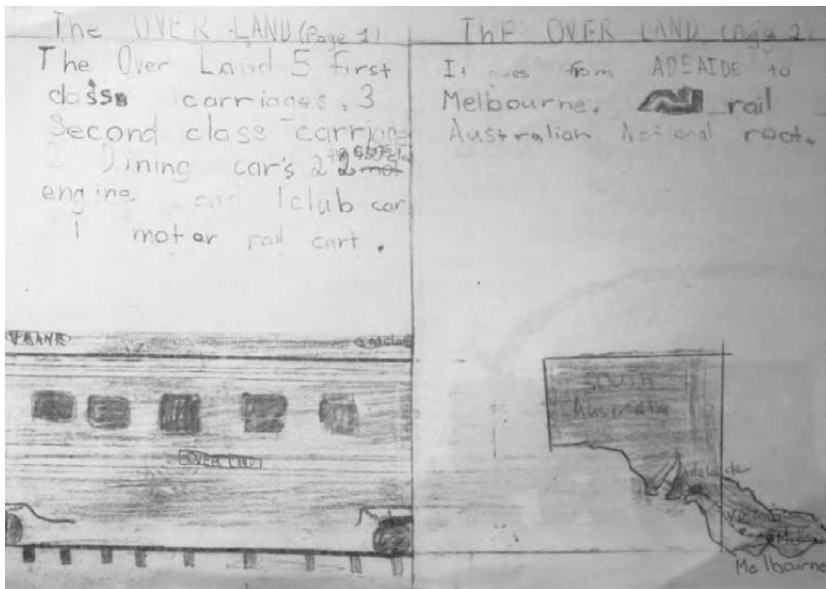 The OVER LAND (Page 1)
The Over Land 5 first
class carriages, 3
Second class carriages
2 Dining car's 2
engine and 1 club car
1 motor rail cart.
OVERLAND
THE OVER LAND (Page 2)
It goes from ADELAIDE to
Melbourne. rail
Australian National root.
South
Australia
Adelaide
Victoria
Melbourne